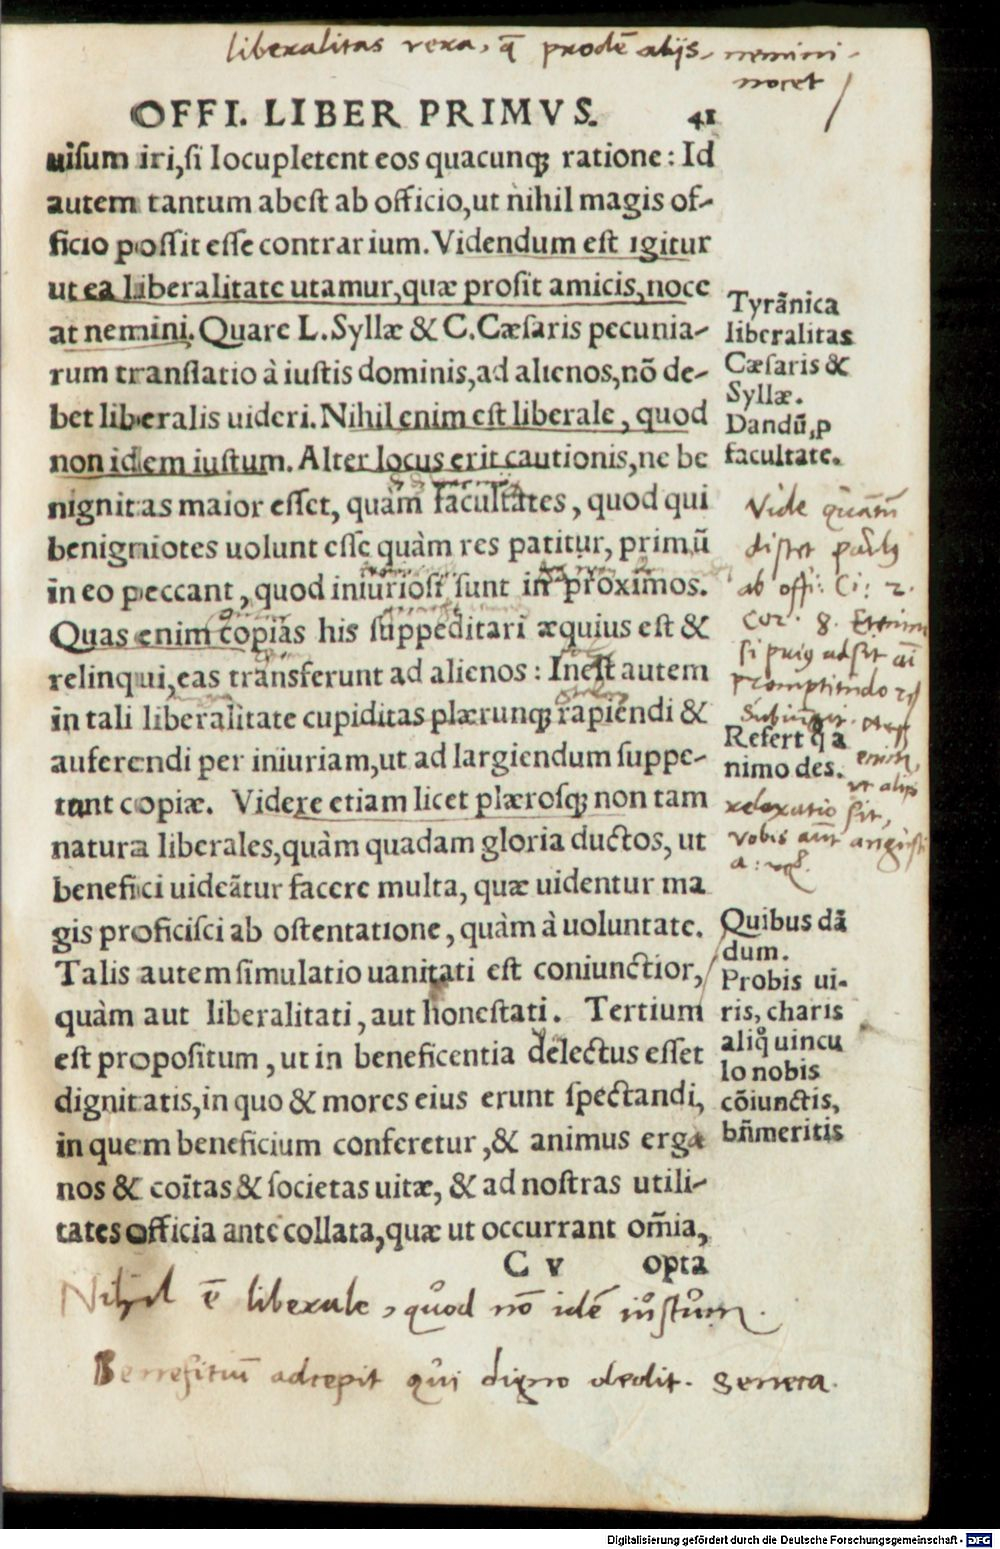 liberalitas vera, q̄ prodē alijs, nemini
nocet
OFFI. LIBER PRIMVS. 41
uisum iri, si locupletent eos quacunq; ratione: Id
autem tantum abest ab officio, ut nihil magis of-
ficio possit esse contrarium. Videndum est igitur
ut ea liberalitate utamur, quæ prosit amicis, noce
at nemini. Quare L. Syllæ & C. Cæsaris pecunia-
rum translatio à iustis dominis, ad alienos, nõ de-
bet liberalis uideri. Nihil enim est liberale, quod
non idem iustum. Alter locus erit cautionis, ne be
nignitas maior esset, quàm facultates, quod qui
benigniotes uolunt esse quàm res patitur, primũ
in eo peccant, quod iniuriosi sunt in proximos.
Quas enim copias his suppeditari æquius est &
relinqui, eas transferunt ad alienos: Inest autem
in tali liberalitate cupiditas plærunq; rapiendi &
auferendi per iniuriam, ut ad largiendum suppe-
tant copiæ. Videre etiam licet plærosq; non tam
natura liberales, quàm quadam gloria ductos, ut
benefici uideãtur facere multa, quæ uidentur ma
gis proficisci ab ostentatione, quàm à uoluntate.
Talis autem simulatio uanitati est coniunctior,
quàm aut liberalitati, aut honestati. Tertium
est propositum, ut in beneficentia delectus esset
dignitatis, in quo & mores eius erunt spectandi,
in quem beneficium conferetur, & animus erga
nos & coĩtas & societas uitæ, & ad nostras utili-
tates officia ante collata, quæ ut occurrant om̃ia,
C v opta
Tyrãnica
liberalitas
Cæsaris &
Syllæ.
Dandũ, p
facultate.
Vide quātū
distet paulus
ab offi: Ci: 2.
Cor. 8. Etenim
si prius adsit
promptitudo
Refert q̃ a
nimo des.
relaxatio sit,
vobis aūt
Quibus dã
dum.
Probis ui-
ris, charis
aliq̊ uincu
lo nobis
cõiunctis,
bñmeritis
Nihil ē liberale, quod nō idē iustum.
Benefitiū adcepit qui digno dedit. Seneca.
Digitalisierung gefördert durch die Deutsche Forschungsgemeinschaft - DFG